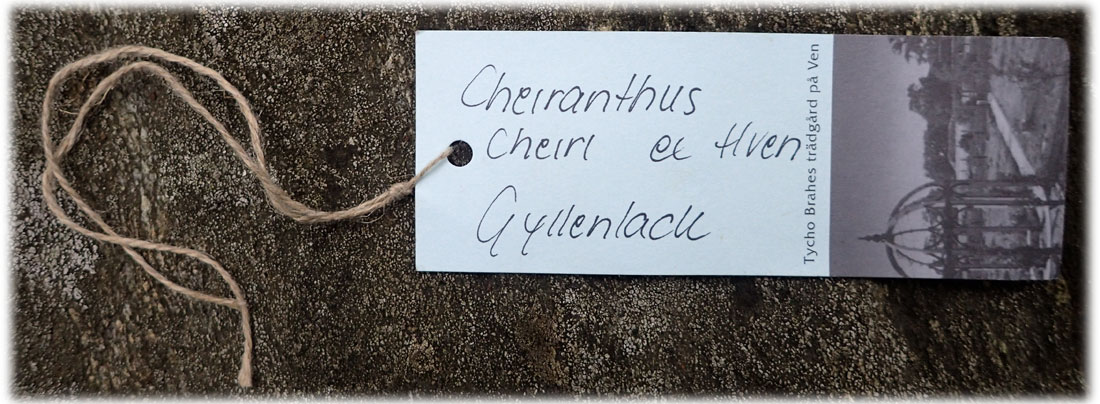 Cheiranthus
Cheiri ex Hven
Gyllenlack
Tycho Brahes trädgård på Ven